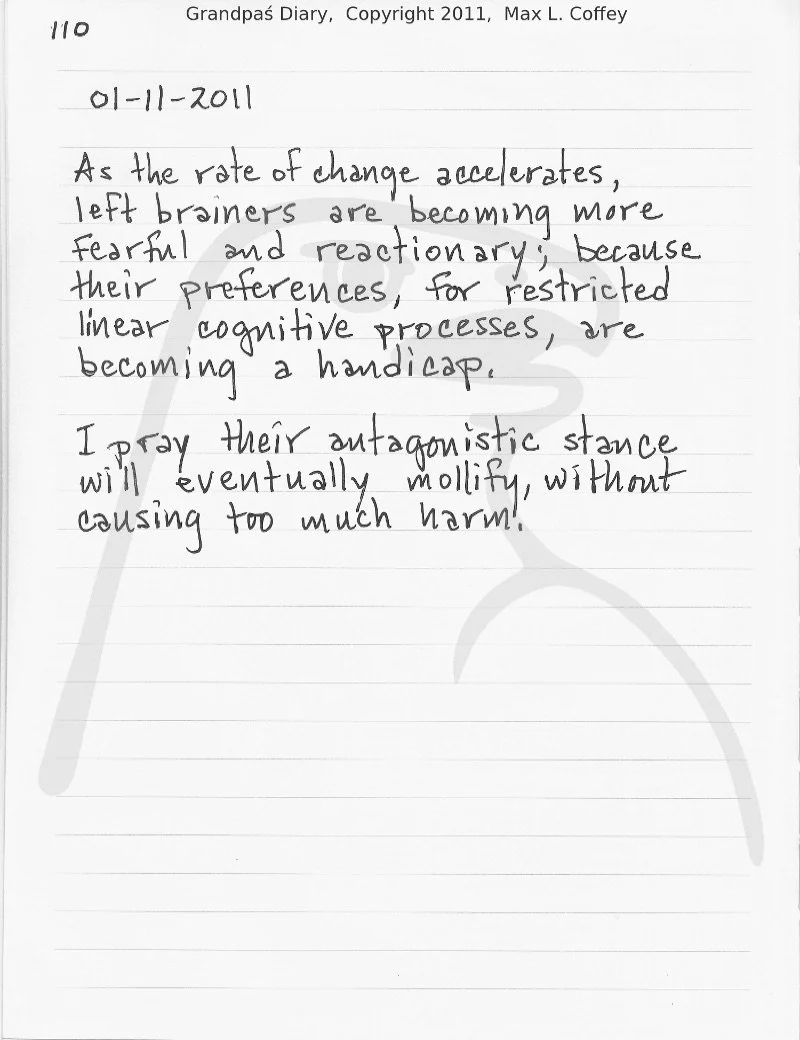 Grandpaś Diary, Copyright 2011, Max L. Coffey
110
01-11-2011
As the rate of change accelerates,
left brainers are becoming more
fearful and reactionary; because
their preferences, for restricted
linear cognitive processes, are
becoming a handicap.
I pray their antagonistic stance
will eventually mollify, without
causing too much harm!